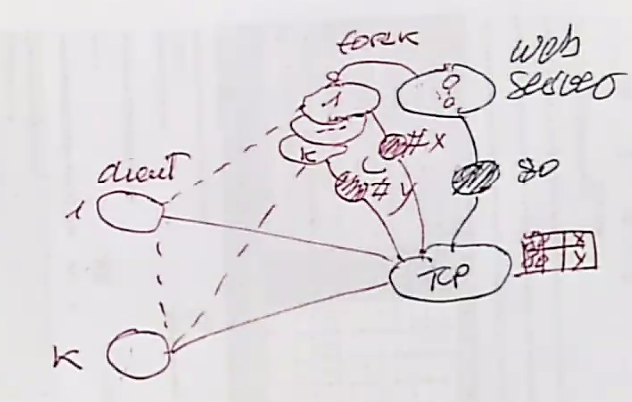 fork
web
server
1
K
#x
#y
80
client
1
TCP
x
y
K